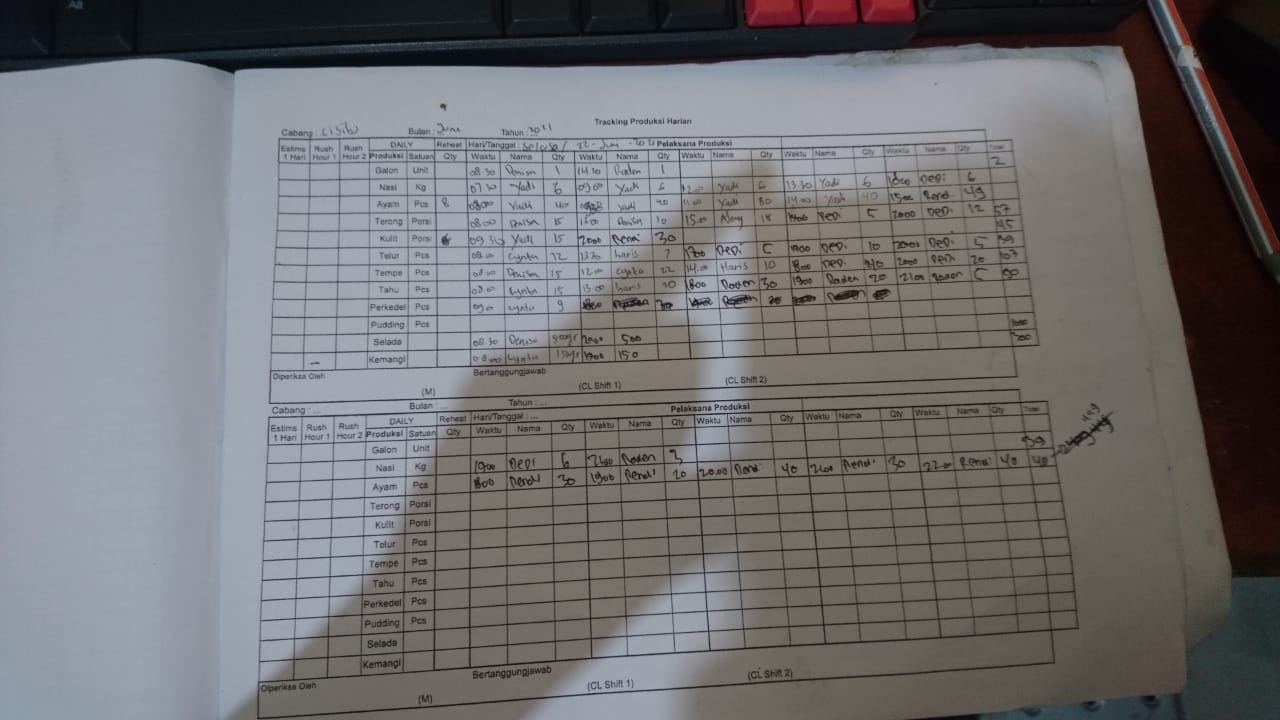 Alt
Tracking Produksi Harian
Cabang : Cisitu Bulan : Juni Tahun :
Estims 1 Hari Rush Hour 1 Rush Hour 2 DAILY Reheat Hari/Tanggal : Selasa/ 22-Juni-2021 Pelaksana Produksi
Produksi Satuan Qty Waktu Nama Qty Waktu Nama Qty Waktu Nama Qty Waktu Nama Qty Waktu Nama Qty Total
Galon Unit 08.30 Denisa 1 14.10 Raden 1 2
Nasi Kg 07.30 Yadi 6 09.00 Yadi 6 12.00 Yadi 6 13.30 Yadi 6 1800 Depi 6
Ayam Pcs 8 08.00 Yadi 40 Yadi 40 11.00 Yadi 80 14.00 Yadi 40 1500 Rendi 49
Terong Porsi 08.00 Denisa 15 Denisa 10 15.00 15 1900 Depi 5 2000 Depi 12 57
Kulit Porsi 09.30 Yadi 15 2000 Rendi 30 45
Telur Pcs 08.00 Cynta 12 haris 7 1700 Depi 5 1900 Depi 10 2000 Depi 5 39
Tempe Pcs 08.00 Denisa 15 12.00 Cynta 22 14.00 Haris 10 1800 Depi 40 2000 Depi 20 107
Tahu Pcs 08.00 Cynta 15 13.00 haris 20 1800 Raden 30 1900 Raden 20 2100 Raden 5 90
Perkedel Pcs 09.00 Cynta 9
Pudding Pcs
Selada 08.30 Denisa 2000 500 1000
Kemangi 08.00 Cynta 1900 150 300
Diperiksa Oleh Bertanggungjawab
(M) (CL Shift 1) (CL Shift 2)
Cabang : ... Bulan : ... Tahun : ...
Estims 1 Hari Rush Hour 1 Rush Hour 2 DAILY Reheat Hari/Tanggal : ... Pelaksana Produksi
Produksi Satuan Qty Waktu Nama Qty Waktu Nama Qty Waktu Nama Qty Waktu Nama Qty Waktu Nama Qty Total
449
Galon Unit
Nasi Kg 1900 Depi 6 2100 Raden 3 39
Ayam Pcs 1800 Rendi 30 1900 Rendi 20 20.00 Rendi 40 2100 Rendi 30 22.00 Rendi 40 40
Terong Porsi
Kulit Porsi
Telur Pcs
Tempe Pcs
Tahu Pcs
Perkedel Pcs
Pudding Pcs
Selada
Kemangi
Diperiksa Oleh Bertanggungjawab
(M) (CL Shift 1) (CL Shift 2)